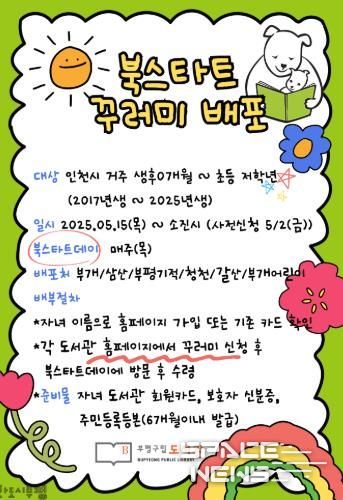 북스타트
꾸러미 배포
대상 인천시 거주 생후0개월 ~ 초등 저학년
(2017년생 ~ 2025년생)
일시 2025.05.15(목) ~ 소진시 (사전신청 5/2(금))
북스타트데이 매주(목)
배포처 부개/삼산/부평기적/청천/갈산/부개어린이
배부절차
*자녀 이름으로 홈페이지 가입 또는 기존 카드 확인
*각 도서관 홈페이지에서 꾸러미 신청 후
북스타트데이에 방문 후 수령
*준비물 자녀 도서관 회원카드, 보호자 신분증,
주민등록등본(6개월이내 발급)
B 부평구립
BUPYEONG PUBLIC
SPACE
NEWS